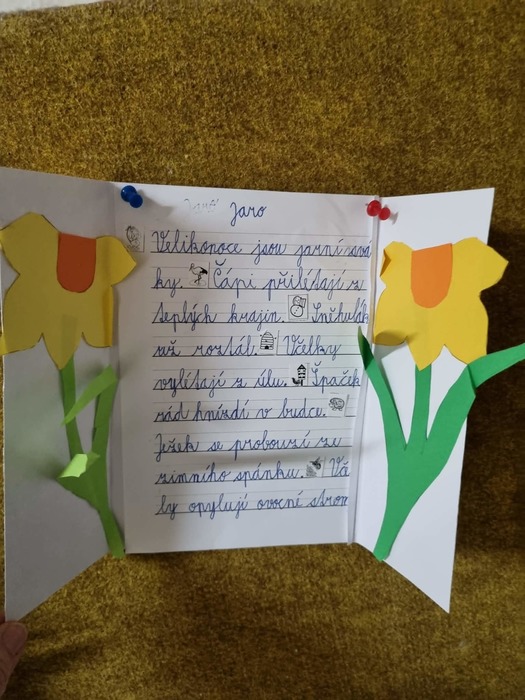 Jaro
Velikonoce jsou jarní svá
ky. Čápi přilétají z
teplých krajin. Sněhulák
už roztál. Včelky
vylétají z úlu. Špaček
rád hnízdí v budce.
Ježek se probouzí ze
zimního spánku. Vče
ly opylují ovocné strom